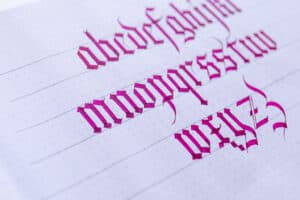 abcdefghijkl
mnopqrsstuv
wxyz